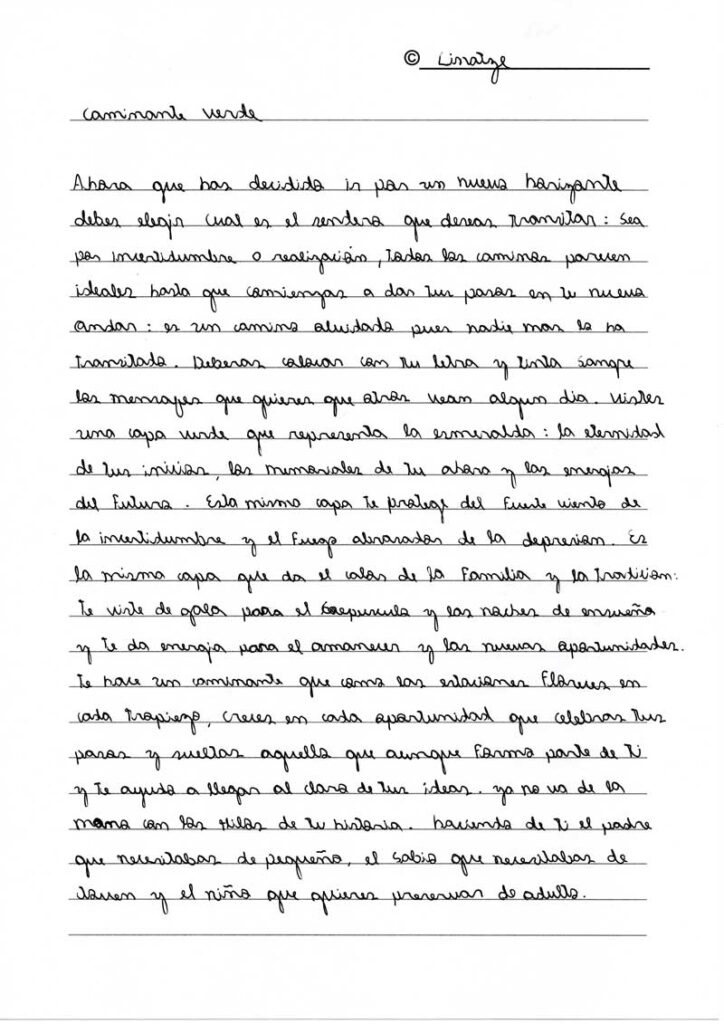 © Linatze
Caminante verde
Ahora que has decidido ir por un nuevo horizonte
debes elegir cual es el sendero que deseas transitar: Sea
por incertidumbre o realización, todos los caminos parecen
ideales hasta que comienzas a dar tus pasos en tu nuevo
andar: es un camino olvidado pues nadie mas lo ha
transitado. Deberas colocar con tu letra y tinta sangre
los mensajes que quieres que otros vean algun dia. Vistes
una capa verde que representa la esmeralda: la eternidad
de tus inicios, los memoriales de tu ahora y las energias
del futuro. Esta misma capa te protege del fuerte viento de
la incertidumbre y el fuego abrazador de la depresion. Es
la misma capa que da el calor de la familia y la tradicion:
te viste de gala para el crepusculo y las noches de ensueño
y te da energia para el amanecer y las nuevas oportunidades.
Te hace un caminante que como las estaciones floreces en
cada tropiezo, creces en cada oportunidad que celebras tus
pasos y sueltas aquello que aunque forma parte de ti
y te ayudo a llegar al claro de tus ideas. ya no va de la
mano con los Hilos de tu historia. haciendo de ti el padre
que necesitabas de pequeño, el sabio que necesitabas de
joven y el niño que quieres preservar de adulto.